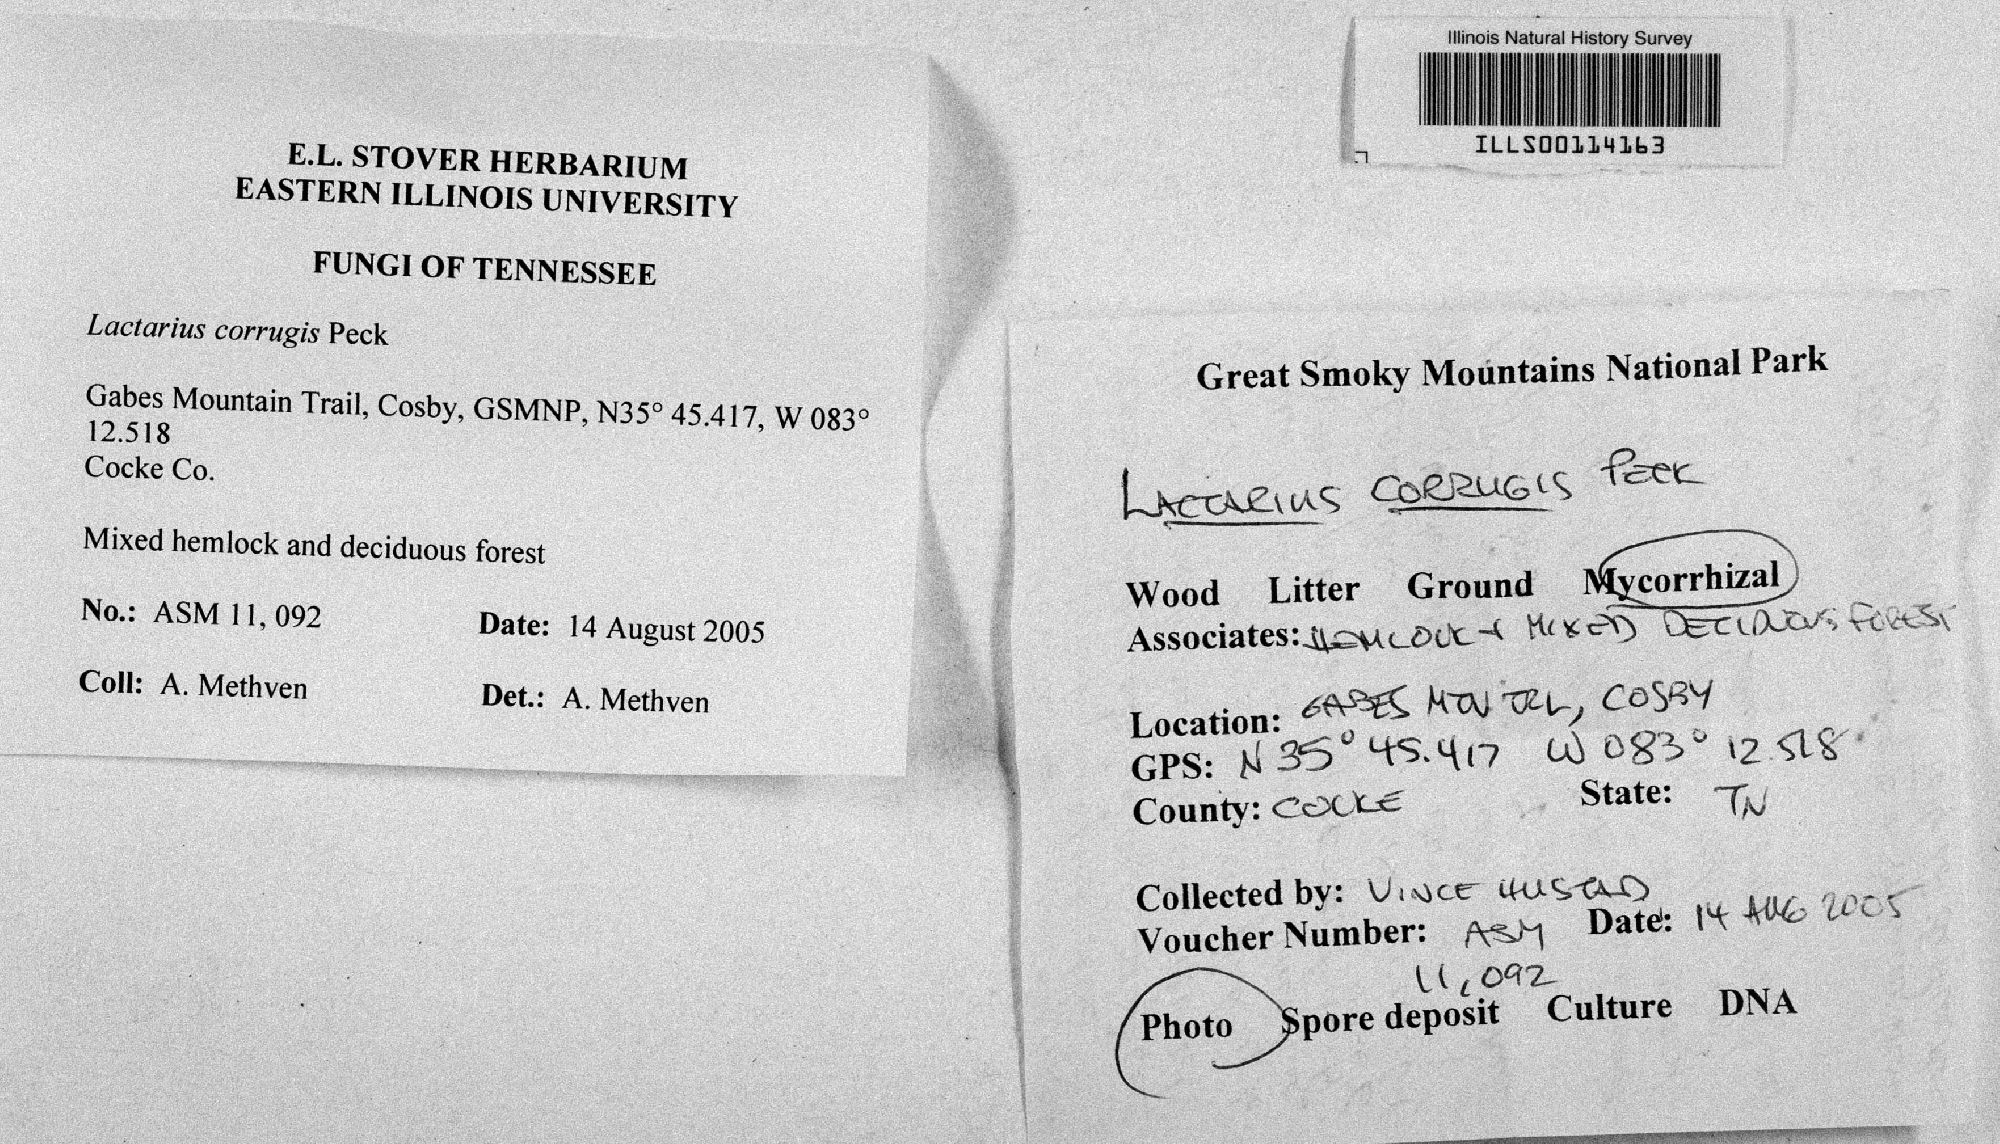 E.L. STOVER HERBARIUM
EASTERN ILLINOIS UNIVERSITY
FUNGI OF TENNESSEE
Lactarius corrugis Peck
Gabes Mountain Trail, Cosby, GSMNP, N35° 45.417, W 083°
12.518
Cocke Co.
Mixed hemlock and deciduous forest
No.: ASM 11, 092 Date: 14 August 2005
Coll: A. Methven Det.: A. Methven
Illinois Natural History Survey
ILLS00114163
Great Smoky Mountains National Park
LACTARIUS CORRUGIS PECK
Wood Litter Ground Mycorrhizal
Associates: HEMLOCK + MIXED DECIDUOUS FOREST
Location: GABES MTN TRL, COSBY
GPS: N 35° 45.417 W 083° 12.518
County: COCKE State: TN
Collected by: VINCE HUSTAD
Voucher Number: ASM Date: 14 AUG 2005
11,092
Photo Spore deposit Culture DNA